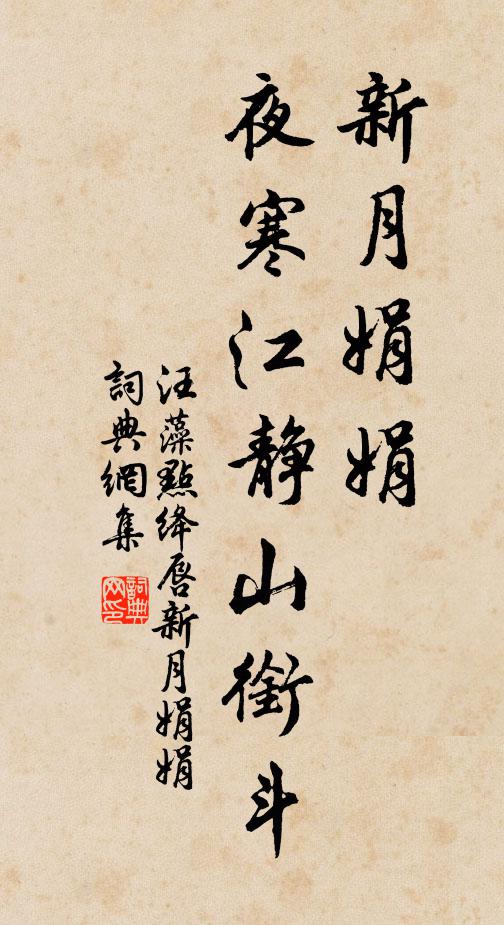 新月娟娟
夜寒江静山銜斗
汪藻點絳唇新月娟娟
詞典網集
詞典网印